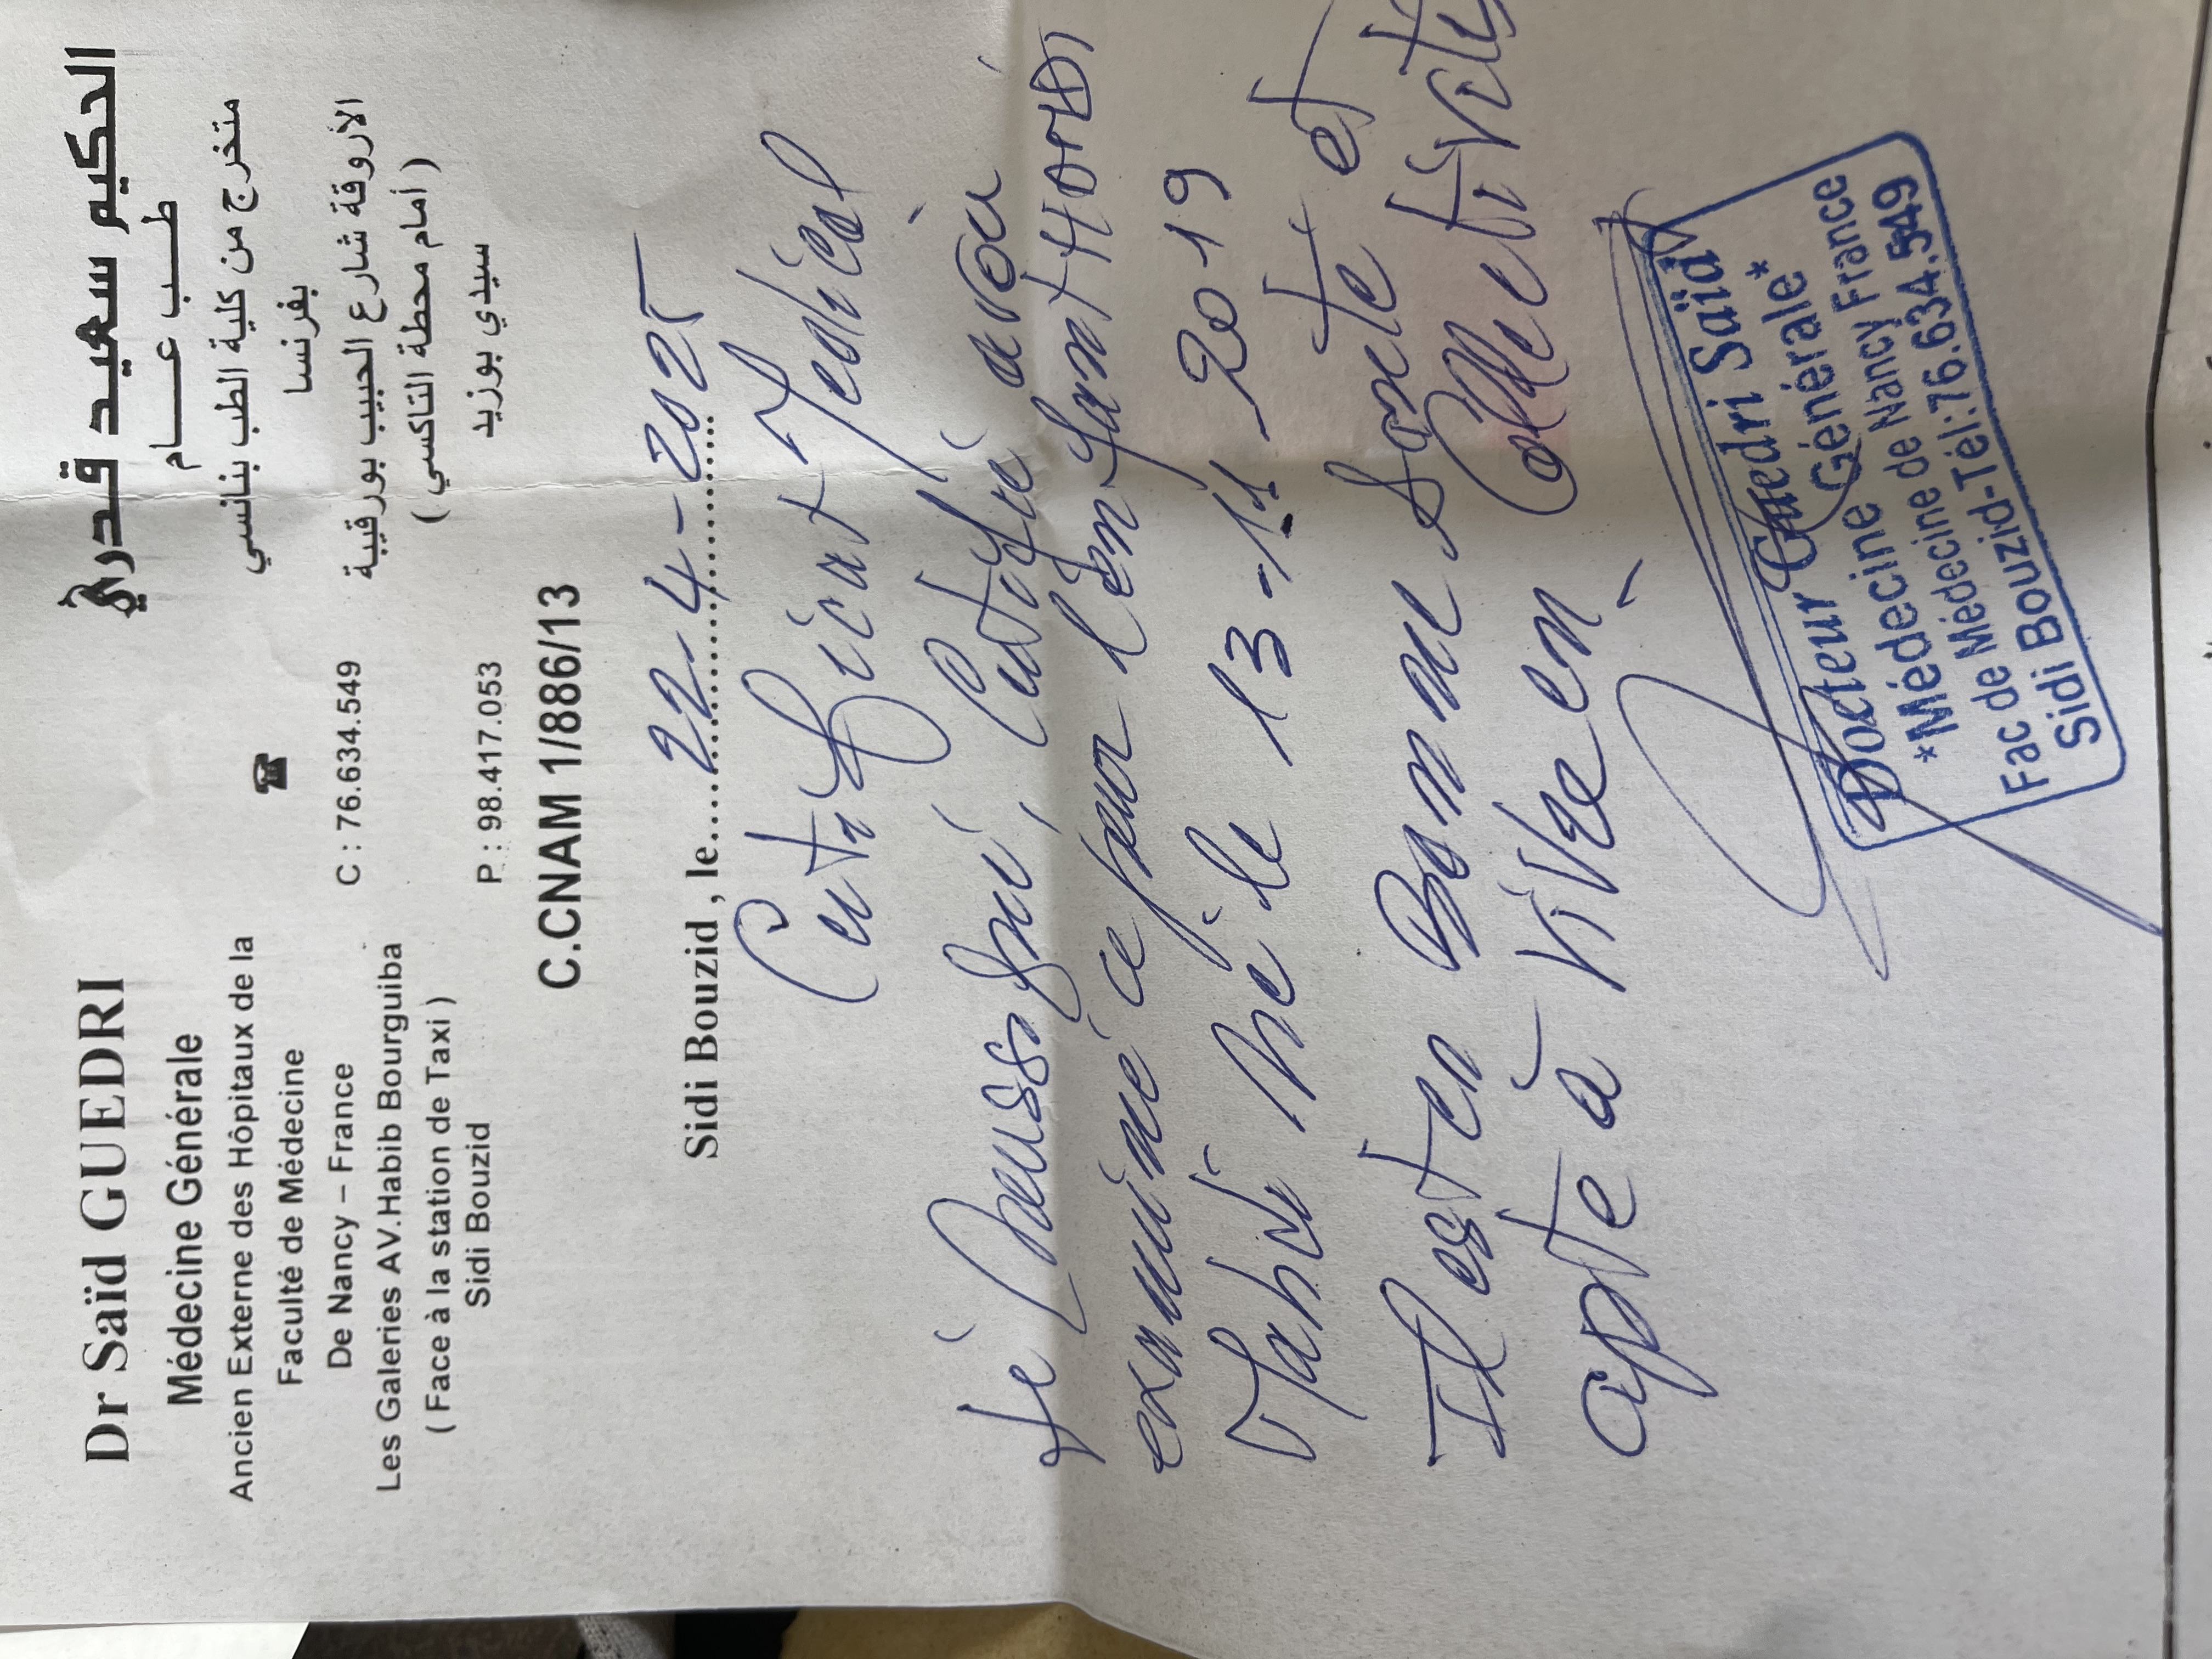 Dr Saïd GUEDRI
Médecine Générale
Ancien Externe des Hôpitaux de la
Faculté de Médecine
De Nancy – France
Les Galeries AV.Habib Bourguiba
( Face à la station de Taxi )
Sidi Bouzid
☎
C : 76.634.549
P : 98.417.053
الحكيم سعيد قدري
طب عام
متخرج من كلية الطب بنانسي
بفرنسا
الأروقة شارع الحبيب بورقيبة
( أمام محطة التاكسي )
سيدي بوزيد
C.CNAM 1/886/13
Sidi Bouzid , le 22-4-2025
Certificat Medical
Je soussigné, Certifié avoir
examiné ce jour l'enfant
Mahdi Né le 13-11-2019
Il est en Bonne Santé et
apte à vivre en Collectivité
Docteur Guedri Saïd
*Médecine Générale*
*Médecine de Nancy France
Fac de Médecine de Nancy France
Sidi Bouzid-Tél:76.634.549